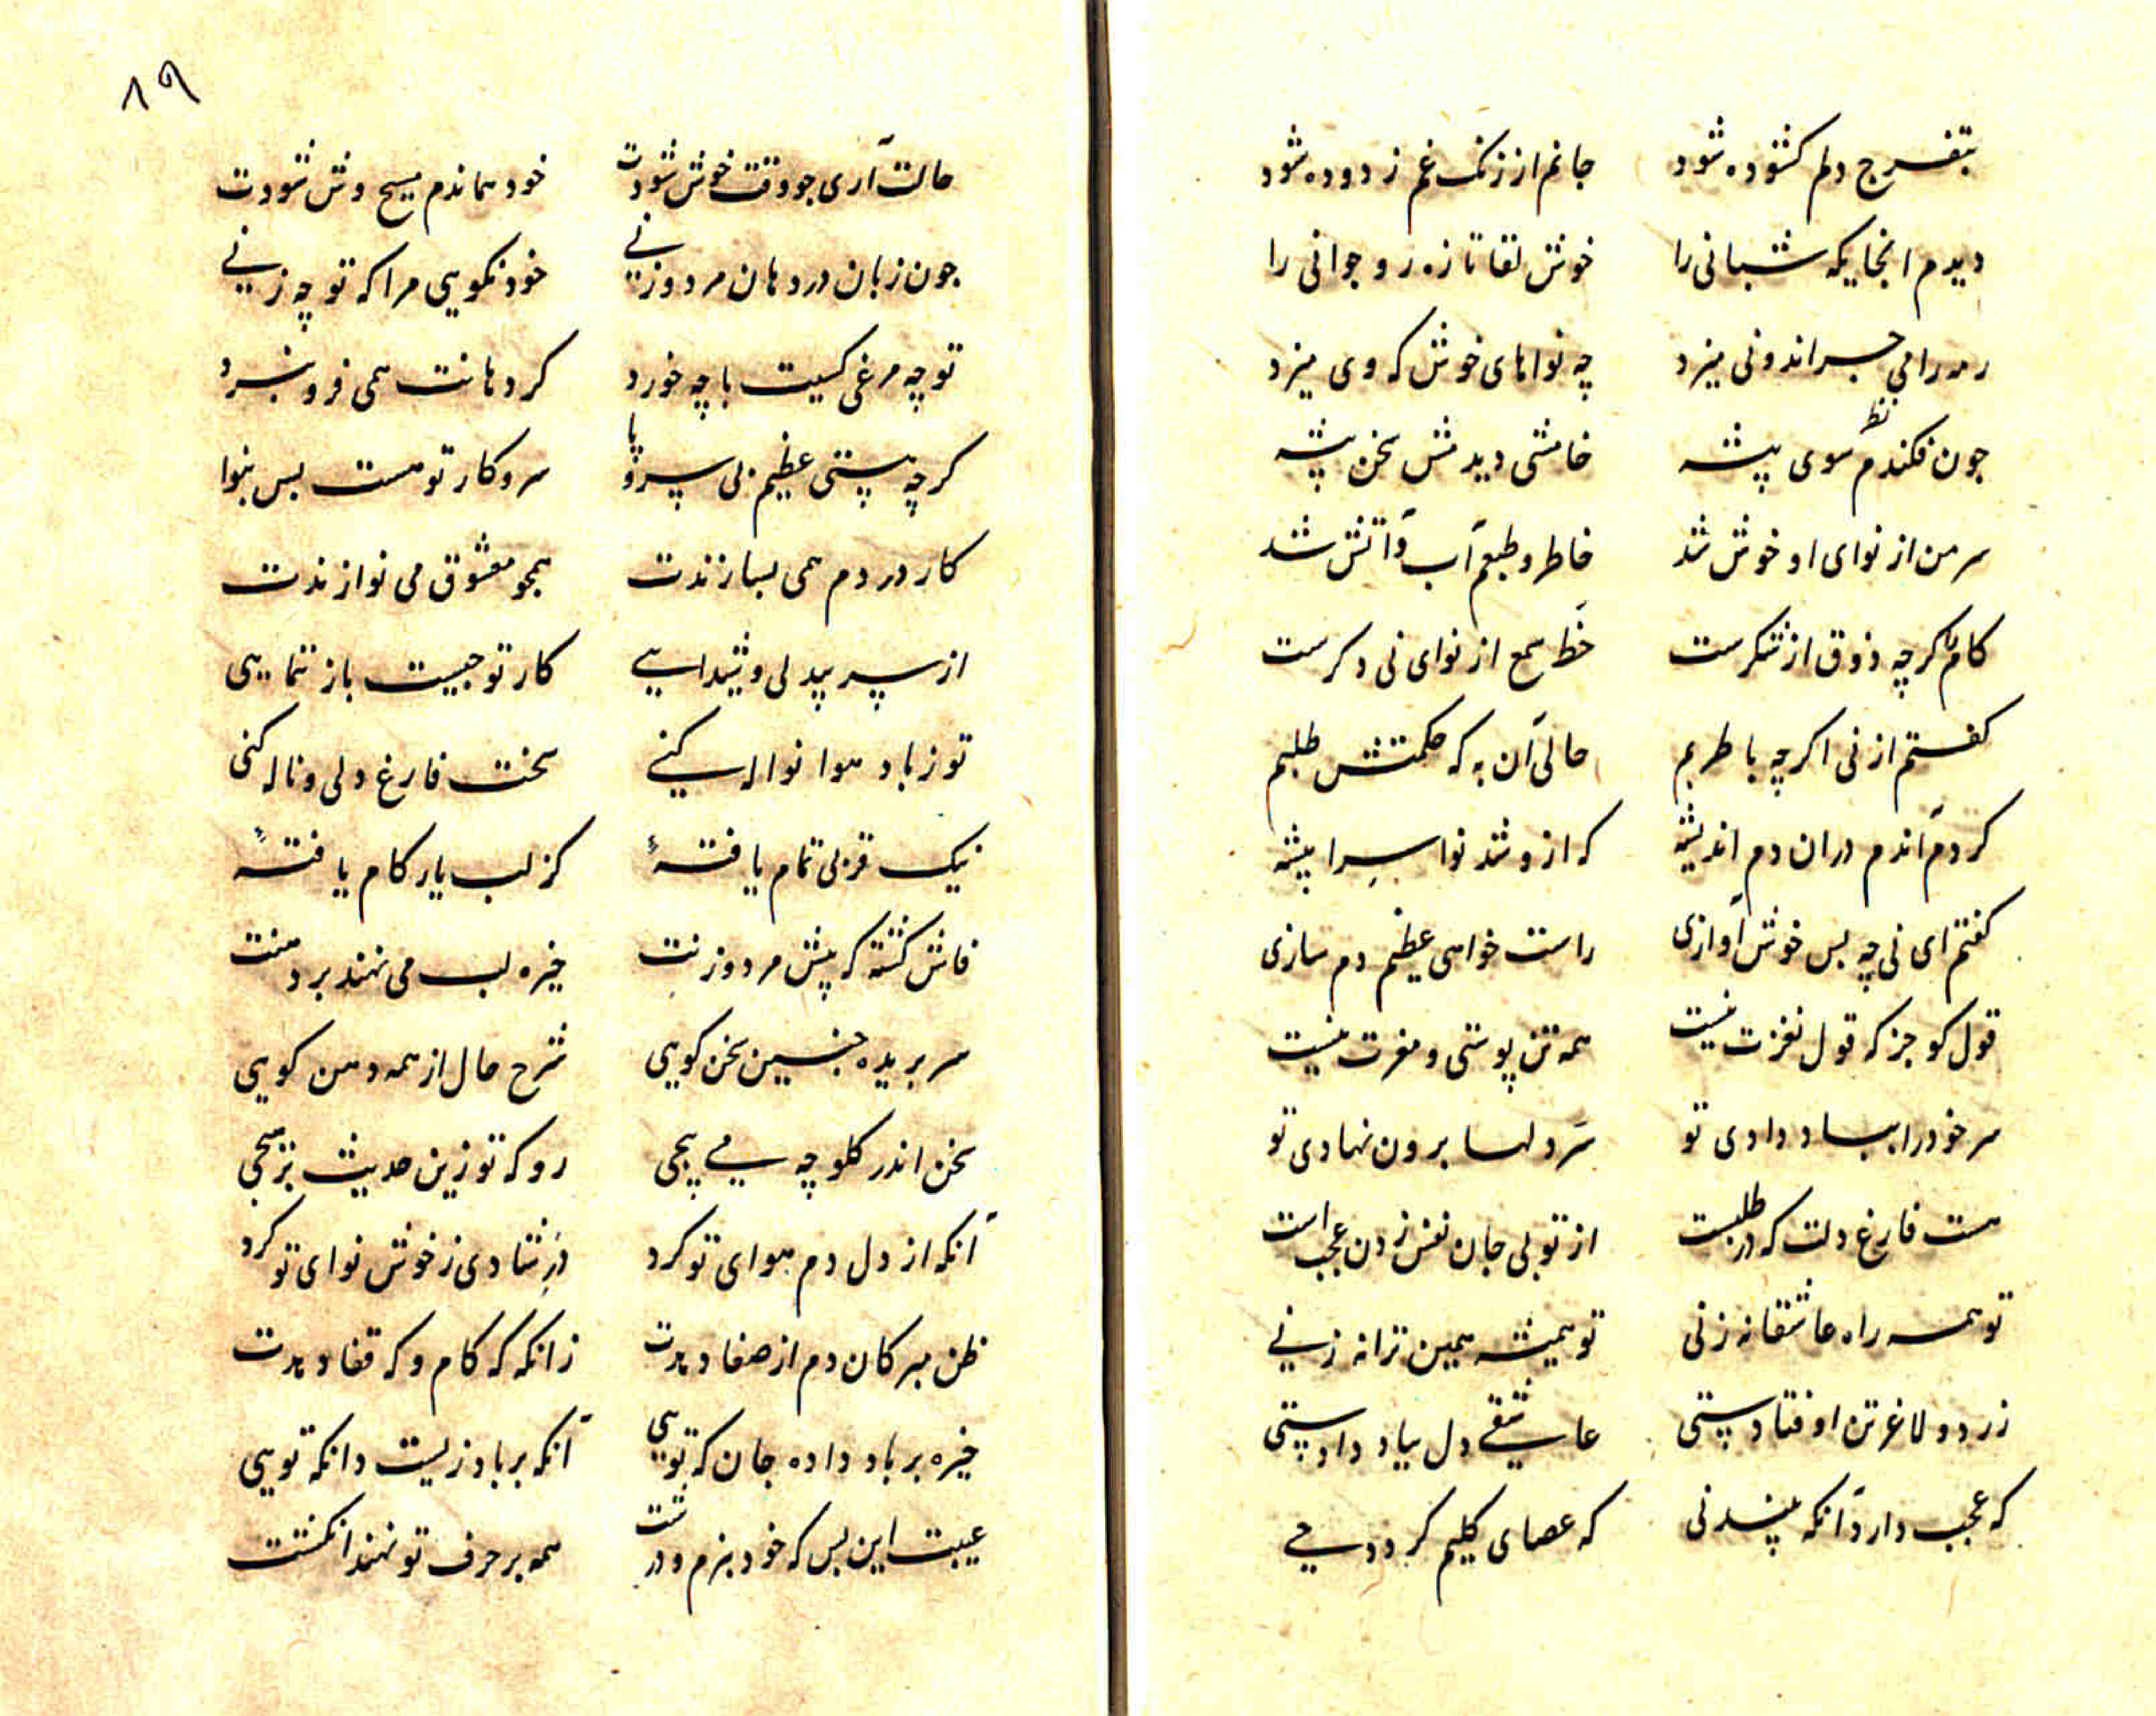 بتفرج دلم کشوده شود جانم از زنک غم زدوده شود
دیدم انجایکه شبانی را خوش لقا تازه رو جوانی را
رمه را می جراند ونی میزد چه نواهای خوش که وی میزد
جون فکندم نظر سوی پیشه خامشی دیدمش سخن پیشه
سر من از نوای او خوش شد خاطر و طبعم آب و آتش شد
کام را کرچه ذوق از شکرست حظ سمع از نوای نی دکرست
کفتم از نی اکرچه با طربم حالی آن به که حکمتش طلبم
کردم آندم دران دم اندیشه که ازو شد نوا سرا پیشه
کفتم ای نی چه بس خوش آوازی راست خواهی عظیم دم سازی
قول کو جز که قول نغزت نیست همه تن پوستی و مغزت نیست
سر خود را بباد دادی تو سر دلها برون نهادی تو
هست فارغ دلت که در طلبست از تو بی جان نفس زدن عجب است
تو همه راه عاشقانه زنی تو همیشه همین ترانه زنی
زرد و لاغر تن اوفتادستی عاشقی دل بباد دادستی
که عجب دارد آنکه بیند نی که عصای کلیم کردد حی
۸۹
حالت آری جو وقت خوش شودت خود هماندم مسیح وش شودت
جون زبان در دهان مرد وزنی خود نکویی مرا که تو چه زنی
تو چه مرغی کسیت با چه خورد کر دهانت همی فرو شرد
کرچه هستی عظیم بی سر و پا سر و کار تو هست بس بنوا
کار در دم همی بسازندت همجو معشوق می نوازندت
از سر بیدلی و شیدایی کار تو جیست باز ننمایی
تو زباد هوا نواله کنی سخت فارغ دلی و ناله کنی
نیک قربی تمام یافتهٔ کز لب یار کام یافتهٔ
فاش کشته که پیش مرد وزنت خیره لب می نهند بر دهنت
سر بریده جنین سخن کویی شرح حال از همه دهن کویی
سخن اندر کلو چه می پیچی رو که تو زین حدیث بر هیچی
آنکه از دل دم هوای تو کرد در شادی ز خوش نوای تو کرد
ظن مبر کان دم از صفا دیدت زانکه که کام و که قفا دیدت
خیره بر باد داده جان که تویی آنکه بر باد زیست دانکه تویی
عیبت این بس که خود بنرم و درشت همه بر حرف تو نهند انکشت